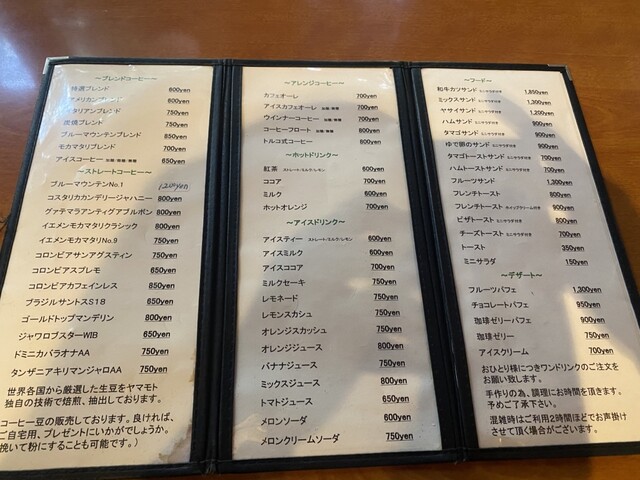 ～ブレンドコーヒー～
特選ブレンド 600yen
アメリカンブレンド 600yen
イタリアンブレンド 750yen
炭焼ブレンド 750yen
ブルーマウンテンブレンド 850yen
モカマタリブレンド 700yen
アイスコーヒー 650yen
～ストレートコーヒー～
ブルーマウンテンNo.1 1200yen
コスタリカカンデリージャハニー 800yen
グァテマラアンティグアブルボン 800yen
イエメンモカマタリクラシック 800yen
イエメンモカマタリNo.9 750yen
コロンビアサンアグスティン 750yen
コロンビアスプレモ 650yen
コロンビアカフェインレス 850yen
ブラジルサントスS18 650yen
ゴールドトップマンデリン 800yen
ジャワロブスターWIB 650yen
ドミニカバラオナAA 750yen
タンザニアキリマンジャロAA 750yen
世界各国から厳選した生豆をヤマモト
独自の技術で焙煎、抽出しております。
コーヒー豆の販売しております。良ければ、
ご自宅用、プレゼントにいかがでしょうか。
挽いて粉にすることも可能です。）
～アレンジコーヒー～
カフェオーレ 700yen
アイスカフェオーレ 加糖/無糖 700yen
ウインナーコーヒー 加糖/無糖 700yen
コーヒーフロート 加糖/無糖 800yen
トルコ式コーヒー 800yen
～ホットドリンク～
紅茶 ストレート/ミルク/レモン 600yen
ココア 700yen
ミルク 600yen
ホットオレンジ 700yen
～アイスドリンク～
アイスティー ストレート/ミルク/レモン 600yen
アイスミルク 600yen
アイスココア 700yen
ミルクセーキ 750yen
レモネード 750yen
レモンスカシュ 750yen
オレンジスカッシュ 750yen
オレンジジュース 800yen
バナナジュース 750yen
ミックスジュース 800yen
トマトジュース 650yen
メロンソーダ 600yen
メロンクリームソーダ 750yen
～フード～
和牛カツサンド ミニサラダ付き 1,850yen
ミックスサンド ミニサラダ付き 1,300yen
ヤサイサンド ミニサラダ付き 1,200yen
ハムサンド ミニサラダ付き 900yen
タマゴサンド ミニサラダ付き 900yen
ゆで卵のサンド ミニサラダ付き 900yen
タマゴトーストサンド ミニサラダ付き 900yen
ハムトーストサンド ミニサラダ付き 900yen
フルーツサンド 1,300yen
フレンチトースト 800yen
フレンチトースト ホイップクリーム付き 900yen
ピザトースト ミニサラダ付き 900yen
チーズトースト ミニサラダ付き 700yen
トースト 350yen
ミニサラダ 150yen
～デザート～
フルーツパフェ 1,300yen
チョコレートパフェ 950yen
珈琲ゼリーパフェ 900yen
珈琲ゼリー 750yen
アイスクリーム 700yen
おひとり様につきワンドリンクのご注文を
お願い致します。
手作りの為、調理にお時間を頂きます。
予めご了承下さい。
混雑時はご利用2時間ほどでお声掛け
させて頂く場合がございます。